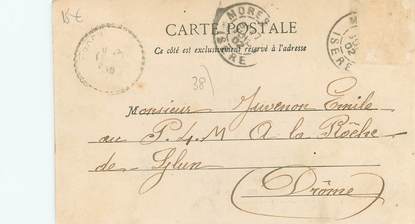 15€
CARTE POSTALE
Ce côté est exclusivement réservé à l'adresse
MORES
ISÈRE
(ISÈRE)
38)
Monsieur Juvenon Emile
au P.L.M à la Roche
de-Glun
(Drôme)